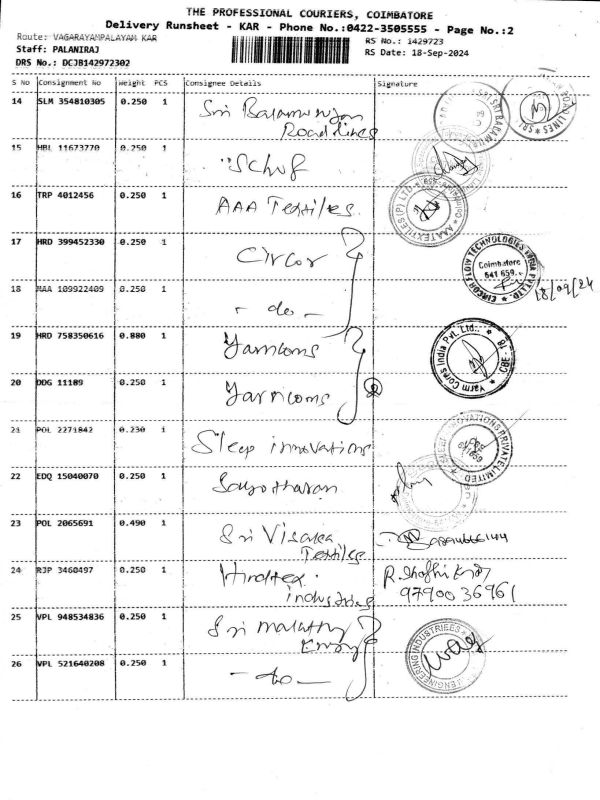 THE PROFESSIONAL COURIERS, COIMBATORE
Delivery Runsheet - KAR - Phone No.:0422-3505555 - Page No.:2
Route: VAGARAYAMPALAYAM KAR
Staff: PALANIRAJ
DRS No.: DCJB142972302
RS No.: 1429723
RS Date: 18-Sep-2024
S No Consignment No Weight PCS Consignee Details Signature
14 SLM 354810305 0.250 1 Sri
Road lines
15 HBL 11673770 0.250 1
16 TRP 4012456 0.250 1 AAA Textiles
AAA TEXTILES (P) LTD
17 HRD 399452330 0.250 1 Circor
CIRCOR FLOW TECHNOLOGIES INDIA PVT LTD.
Coimbatore
641 659.
18/09/24
18 MAA 109922409 0.250 1 - do -
19 HRD 758350616 0.880 1 Yarncoms
Yarm Corps India Pvt. Ltd.,
CBE - 18
20 DDG 11189 0.250 1 Yarncoms
2
21 POL 2271842 0.230 1 Sleep innovations
INNOVATIONS PRIVATE LIMITED
22 EDQ 15040070 0.250 1
23 POL 2065691 0.490 1 Sri Visaka
Textiles
24 RJP 3460497 0.250 1 Hindtex
industries
9790036961
25 VPL 948534836 0.250 1 Sri Malathy
Engg
ENGINEERING INDUSTRIEES
26 VPL 521640208 0.250 1 - do -